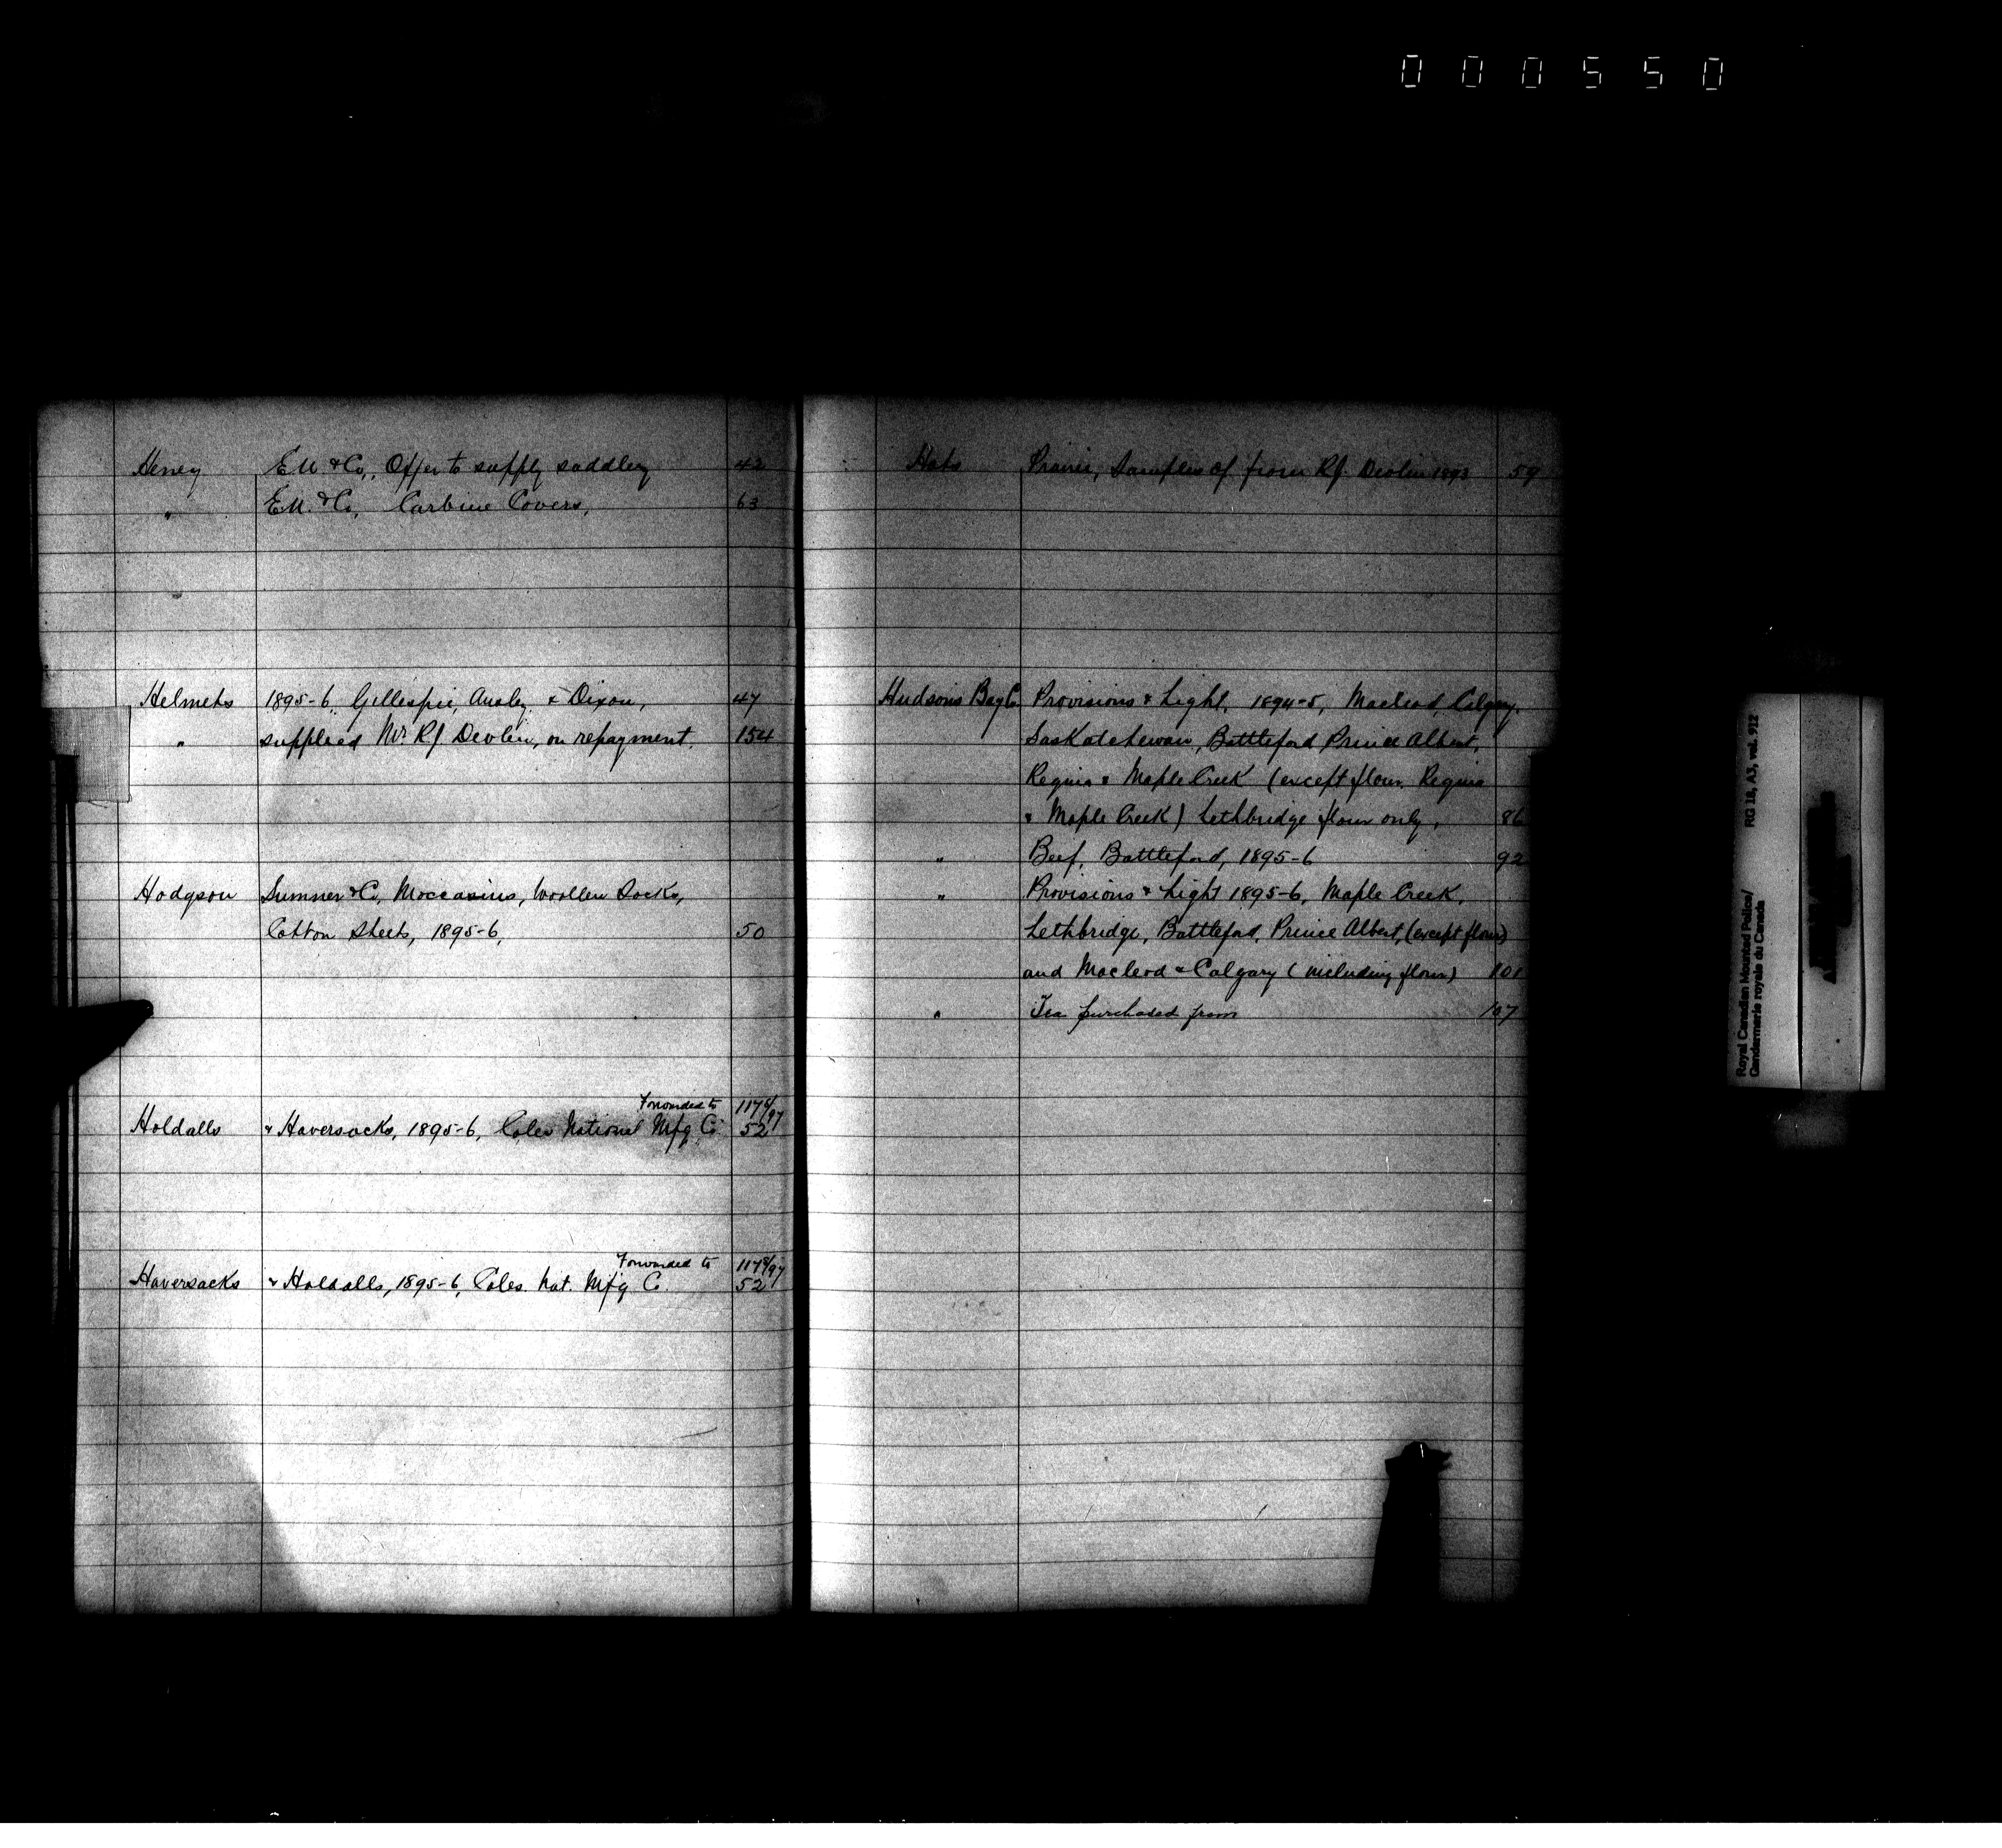 000550
Heney E.N. & Co., Offer to supply saddlery 42
" E.N. & Co, Carbine Covers, 63
Helmets 1895-6, Gillespie, Ansley, & Dixon, 47
" supplied Mr. RJ Devlin, on repayment. 154
Hodgson Sumner & Co, Moccasins, Woollen Socks,
Cotton Sheets, 1895-6, 50
Forwarded to 1176/97
Holdalls & Haversacks, 1895-6, Coles National Mfg Co 52
Forwarded to 1176/97
Haversacks & Holdalls, 1895-6, Coles. Nat. Mfg Co. 52
Hats Prairie, Samples of from RJ. Devlin 1893 59
Hudsons Bay Co. Provisions & Light, 1894-5, Macleod, Calgary.
Saskatchewan, Battleford Prince Albert,
Regina & Maple Creek (except flour Regina
& Maple Creek) Lethbridge flour only, 86
" Beef, Battleford, 1895-6 92
" Provisions & Light 1895-6, Maple Creek,
Lethbridge, Battleford, Prince Albert, (except flour)
and Macleod & Calgary (including flour) 101
" Tea purchased from 107
Royal Canadian Mounted Police/ RG 18, A3, vol. 912
Gendarmerie royale du Canada